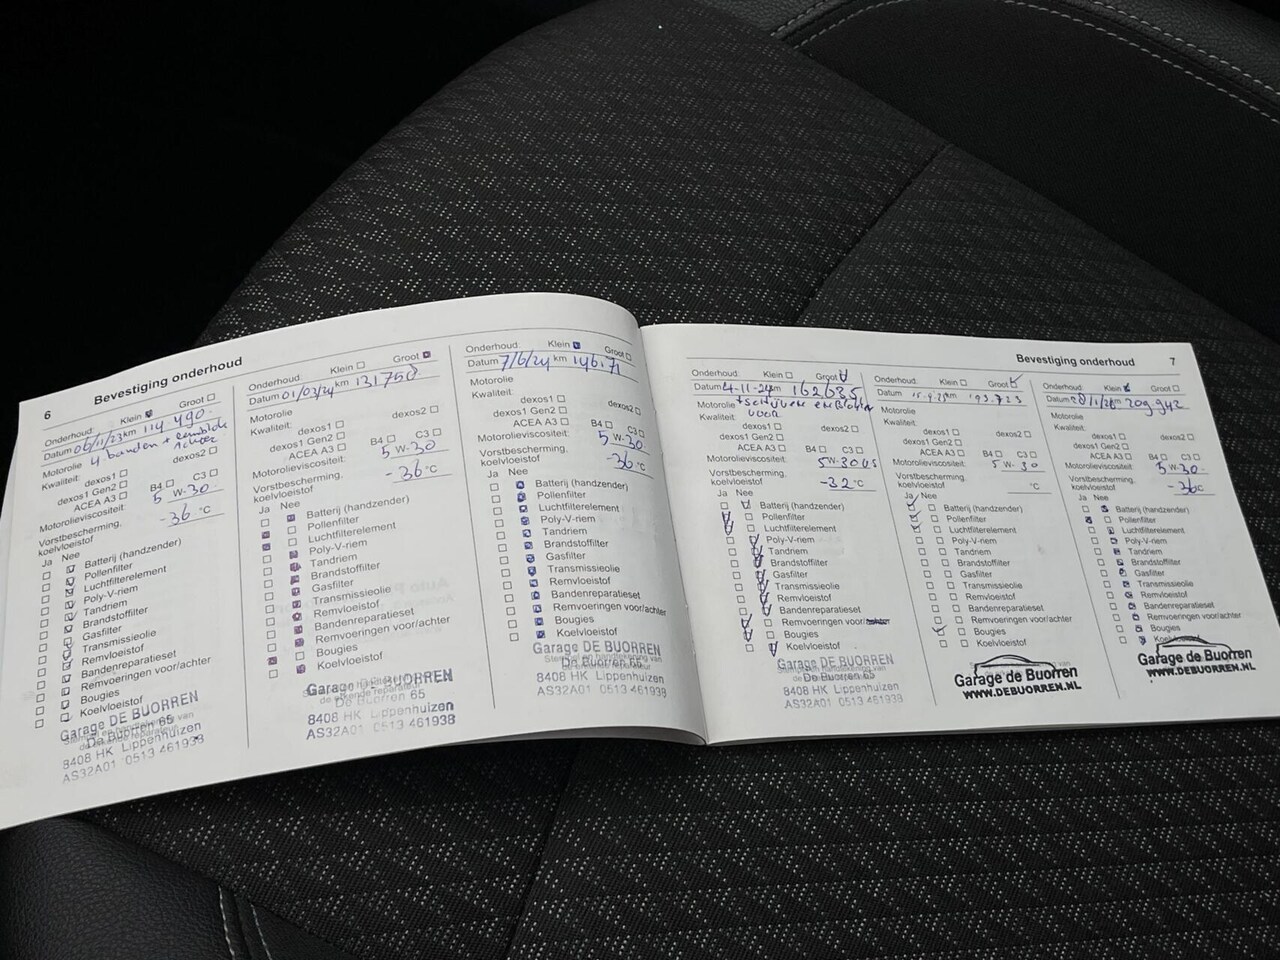 6 Bevestiging onderhoud
Onderhoud: Klein Groot
Datum 06/11/23 km 114 490
Motorolie 4 banden +
Kwaliteit: dexos1 dexos2
dexos1 Gen2
ACEA A3 B4 C3
Motorolieviscositeit: 5 W-30
Vorstbescherming,
koelvloeistof -36 °C
Ja Nee
Batterij (handzender)
Pollenfilter
Luchtfilterelement
Poly-V-riem
Tandriem
Brandstoffilter
Gasfilter
Transmissieolie
Remvloeistof
Bandenreparatieset
Remvoeringen voor/achter
Bougies
Koelvloeistof
Garage DE BUORREN
De Buorren 65
8408 HK Lippenhuizen
AS32A01 0513 461938
Onderhoud: Klein Groot
Datum 01/03/24 km 131758
Motorolie
Kwaliteit: dexos1 dexos2
dexos1 Gen2
ACEA A3 B4 C3
Motorolieviscositeit: 5 W-30
Vorstbescherming,
koelvloeistof -36 °C
Ja Nee
Batterij (handzender)
Pollenfilter
Luchtfilterelement
Poly-V-riem
Tandriem
Brandstoffilter
Gasfilter
Transmissieolie
Remvloeistof
Bandenreparatieset
Remvoeringen voor/achter
Bougies
Koelvloeistof
Garage DE BUORREN
De Buorren 65
8408 HK Lippenhuizen
AS32A01 0513 461938
Onderhoud: Klein Groot
Datum 7/6/24 km
Motorolie
Kwaliteit:
dexos1 dexos2
dexos1 Gen2
ACEA A3 B4 C3
Motorolieviscositeit: 5 W-30
Vorstbescherming,
koelvloeistof -36 °C
Ja Nee
Batterij (handzender)
Pollenfilter
Luchtfilterelement
Poly-V-riem
Tandriem
Brandstoffilter
Gasfilter
Transmissieolie
Remvloeistof
Bandenreparatieset
Remvoeringen voor/achter
Bougies
Koelvloeistof
Garage DE BUORREN
De Buorren 65
8408 HK Lippenhuizen
AS32A01 0513 461938
Bevestiging onderhoud 7
Onderhoud: Klein Groot
Datum 4-11-24 km 162635
Motorolie + schijven en blokken
Kwaliteit: voor
dexos1 dexos2
dexos1 Gen2
ACEA A3 B4 C3
Motorolieviscositeit: 5W-30
Vorstbescherming,
koelvloeistof -32 °C
Ja Nee
Batterij (handzender)
Pollenfilter
Luchtfilterelement
Poly-V-riem
Tandriem
Brandstoffilter
Gasfilter
Transmissieolie
Remvloeistof
Bandenreparatieset
Remvoeringen voor/achter
Bougies
Koelvloeistof
Garage DE BUORREN
De Buorren 65
8408 HK Lippenhuizen
AS32A01 0513 461938
Onderhoud: Klein Groot
Datum km 193.723
Motorolie
Kwaliteit:
dexos1 dexos2
dexos1 Gen2
ACEA A3 B4 C3
Motorolieviscositeit: 5 W- 30
Vorstbescherming,
koelvloeistof °C
Ja Nee
Batterij (handzender)
Pollenfilter
Luchtfilterelement
Poly-V-riem
Tandriem
Brandstoffilter
Gasfilter
Transmissieolie
Remvloeistof
Bandenreparatieset
Remvoeringen voor/achter
Bougies
Koelvloeistof
Garage de Buorren
WWW.DEBUORREN.NL
Onderhoud: Klein Groot
Datum km 209942
Motorolie
Kwaliteit:
dexos1 dexos2
dexos1 Gen2
ACEA A3 B4 C3
Motorolieviscositeit: 5 W-30
Vorstbescherming,
koelvloeistof -36 °C
Ja Nee
Batterij (handzender)
Pollenfilter
Luchtfilterelement
Poly-V-riem
Tandriem
Brandstoffilter
Gasfilter
Transmissieolie
Remvloeistof
Bandenreparatieset
Remvoeringen voor/achter
Bougies
Koelvloeistof
Garage de Buorren
WWW.DEBUORREN.NL